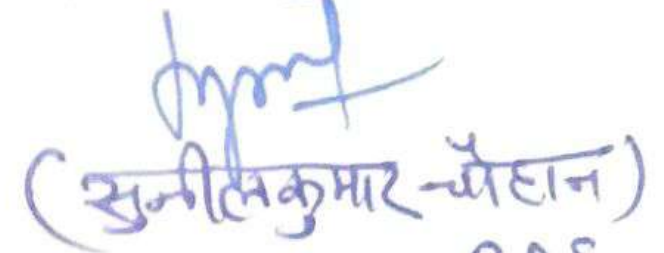 (सुनील कुमार चौहान)